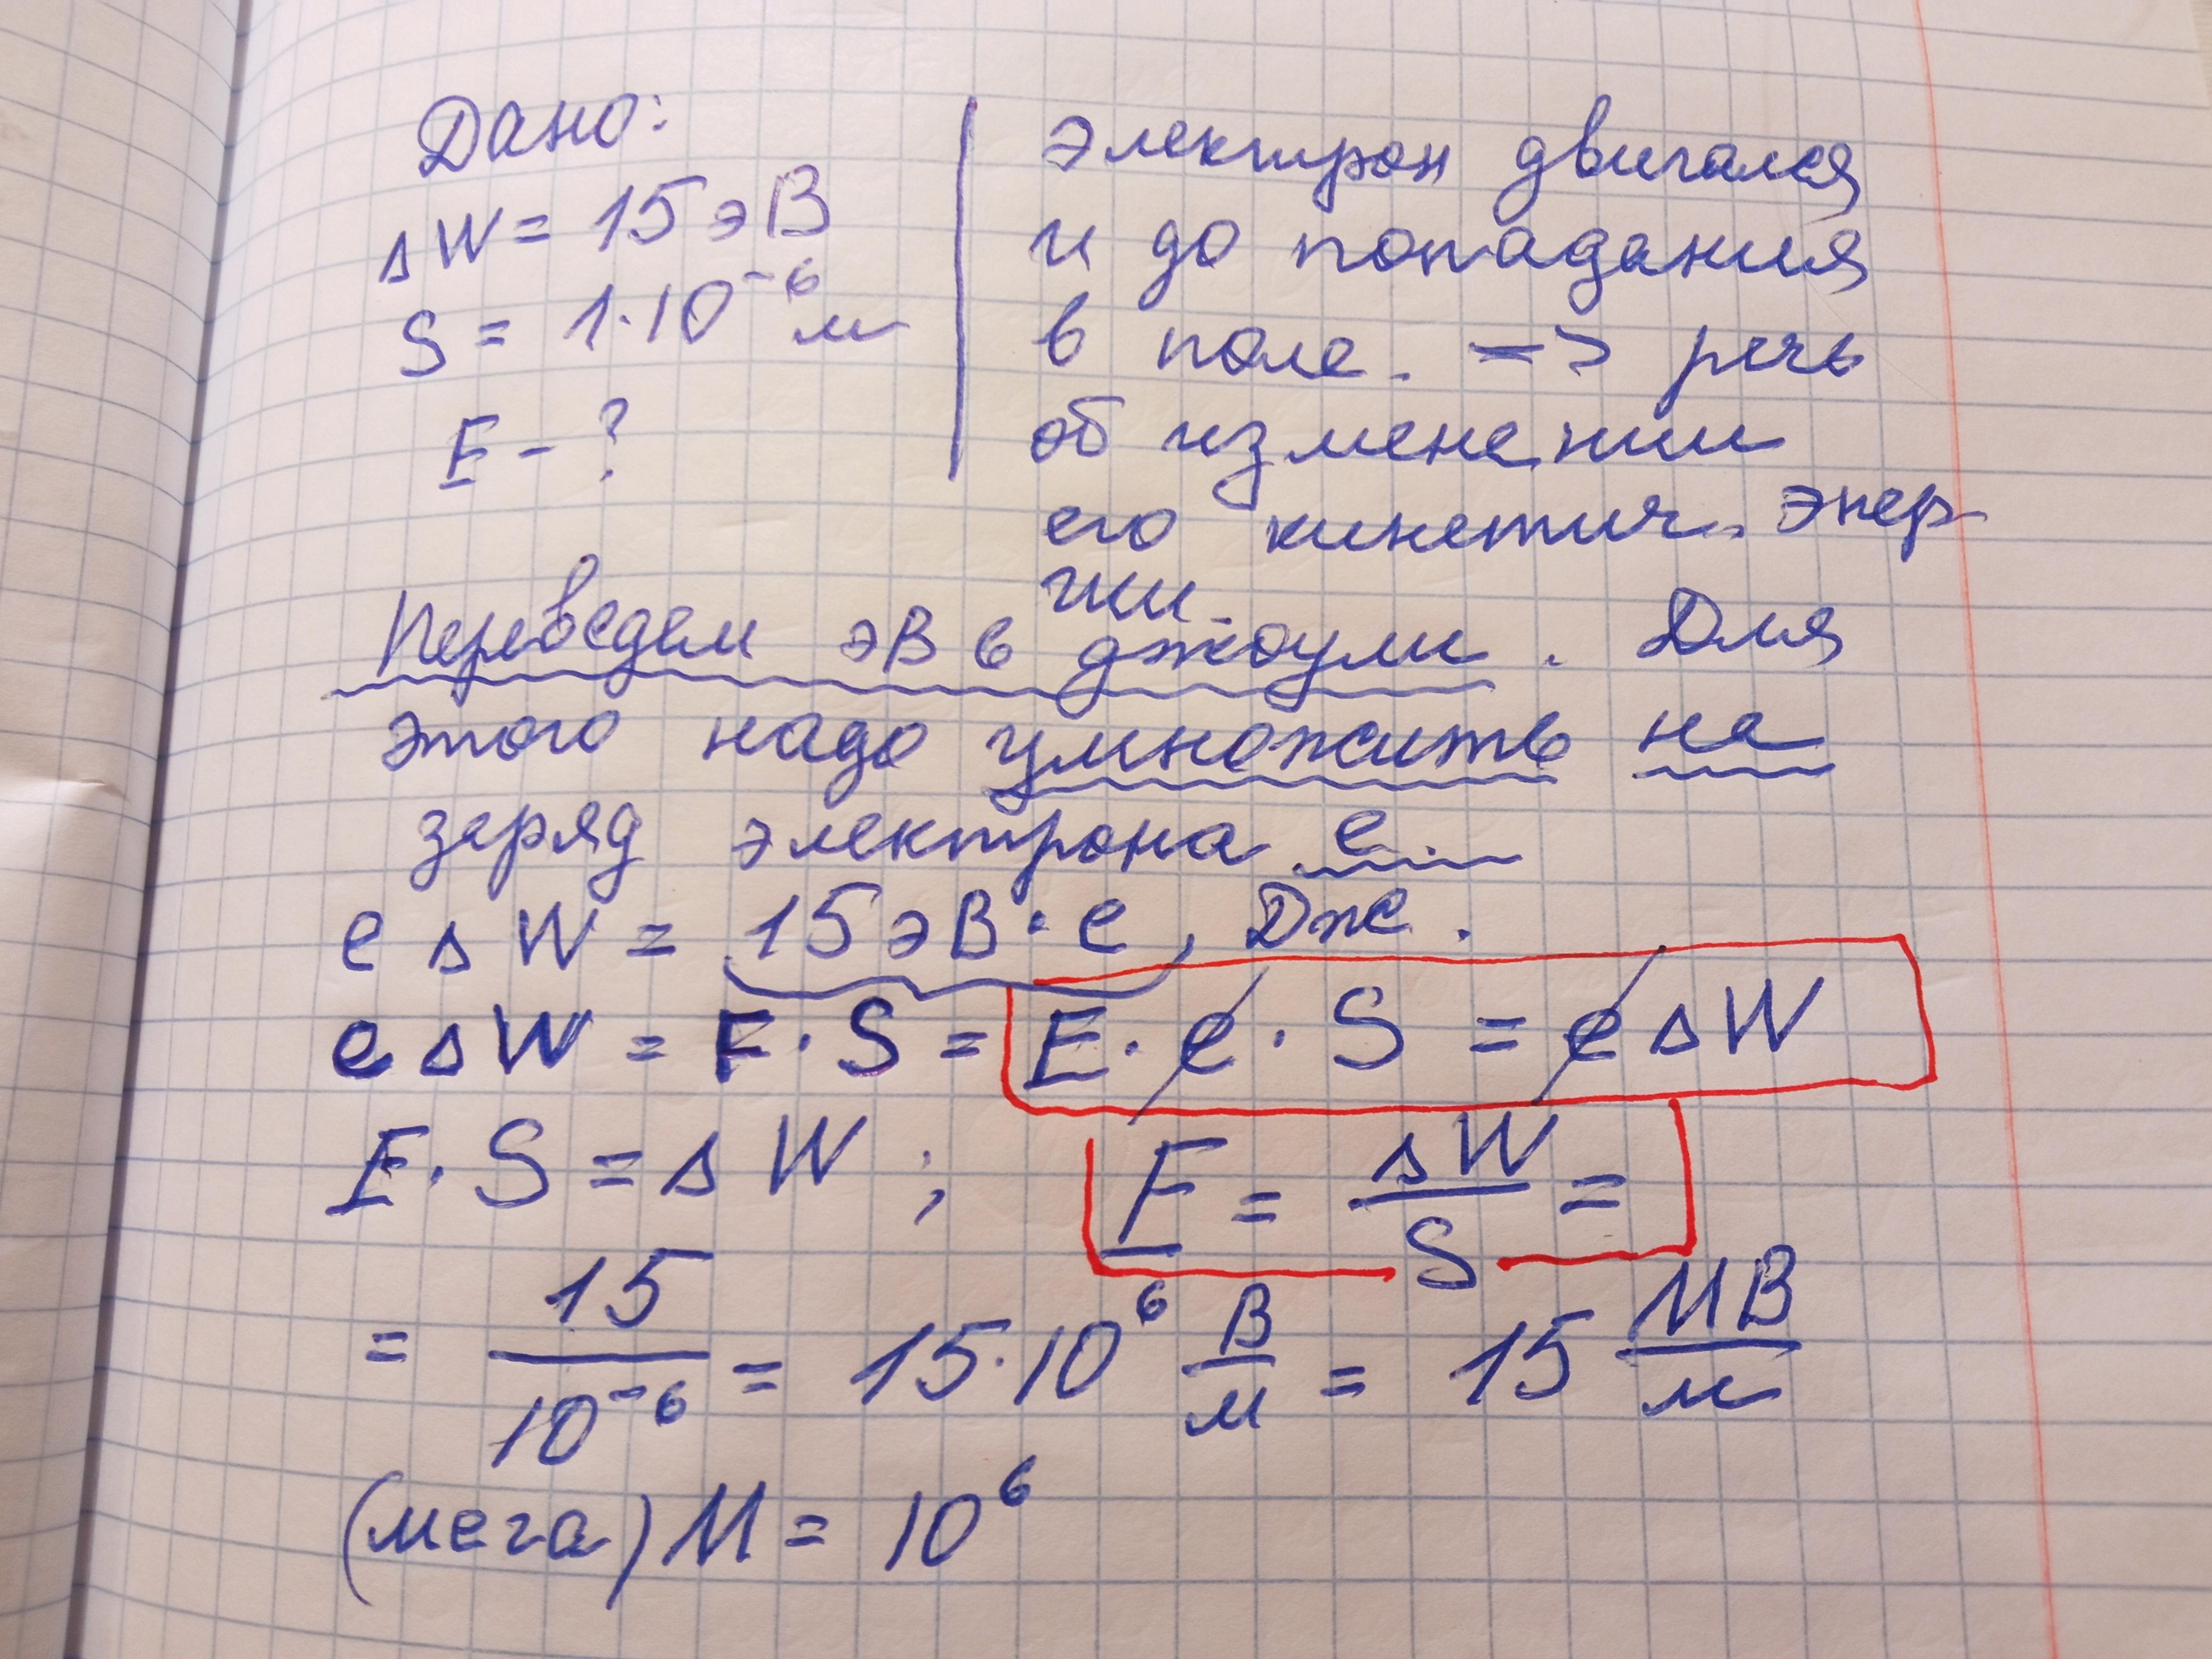 Дано:
ΔW = 15 эВ
S = 1·10⁻⁶ м
E - ?
электрон двигался
и до попадания
в поле. => речь
об изменении
его кинетич. энер-
гии.
Переведем эВ в джоули. Для
этого надо умножить на
заряд электрона e.
e ΔW = 15 эВ · e, Дж.
e ΔW = F · S = E · e · S = e ΔW
E · S = ΔW ; E = ΔW/S =
= 15/10⁻⁶ = 15·10⁶ В/м = 15 МВ/м
(мега) М = 10⁶